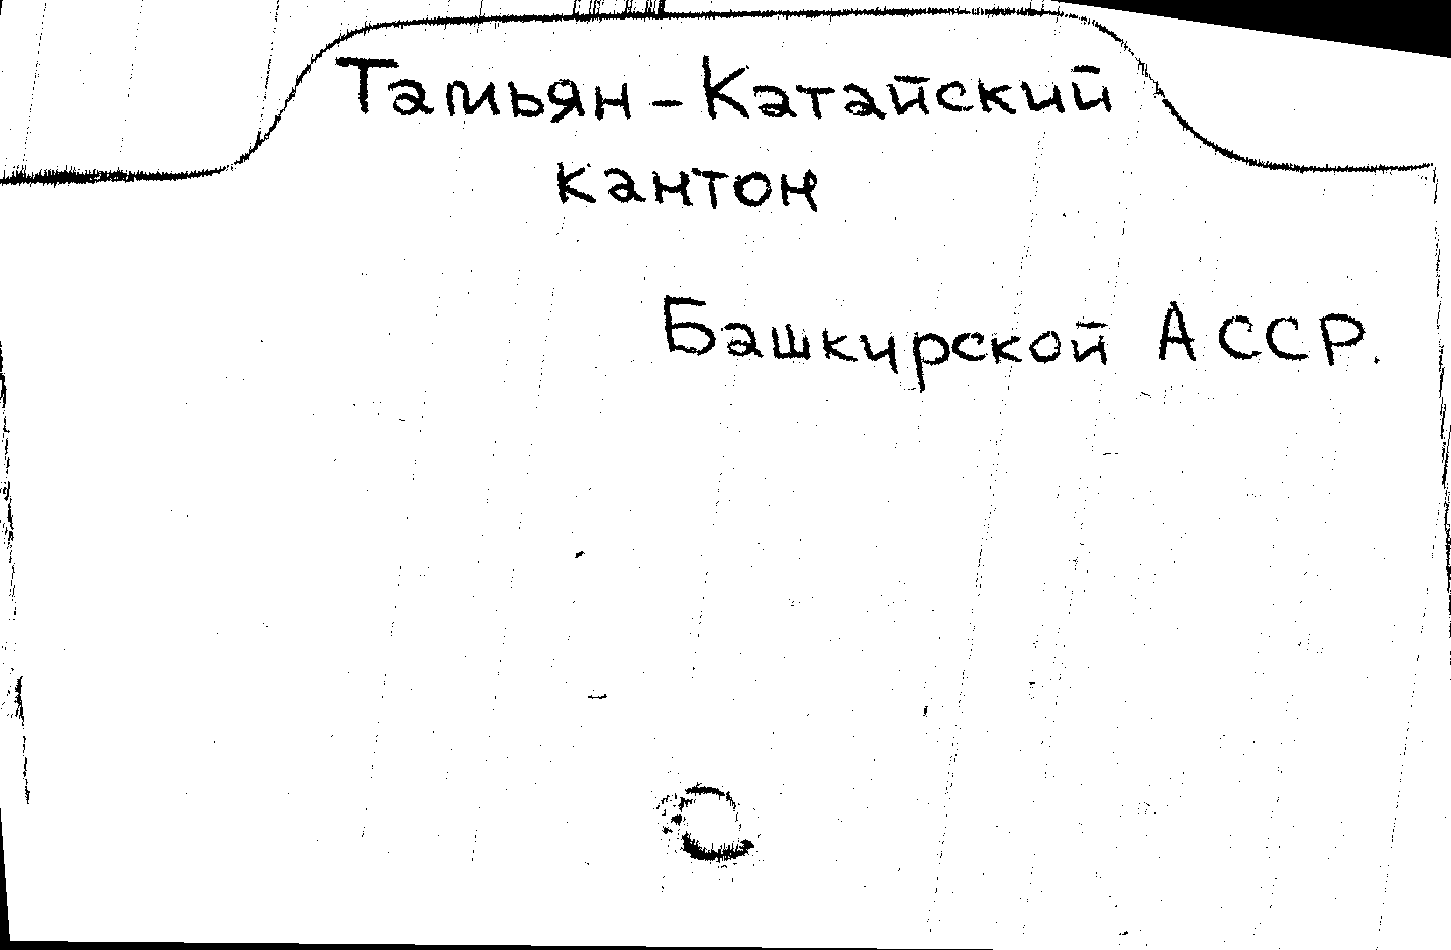 Тамьян-Катайский
кантон
Башкирской АССР.